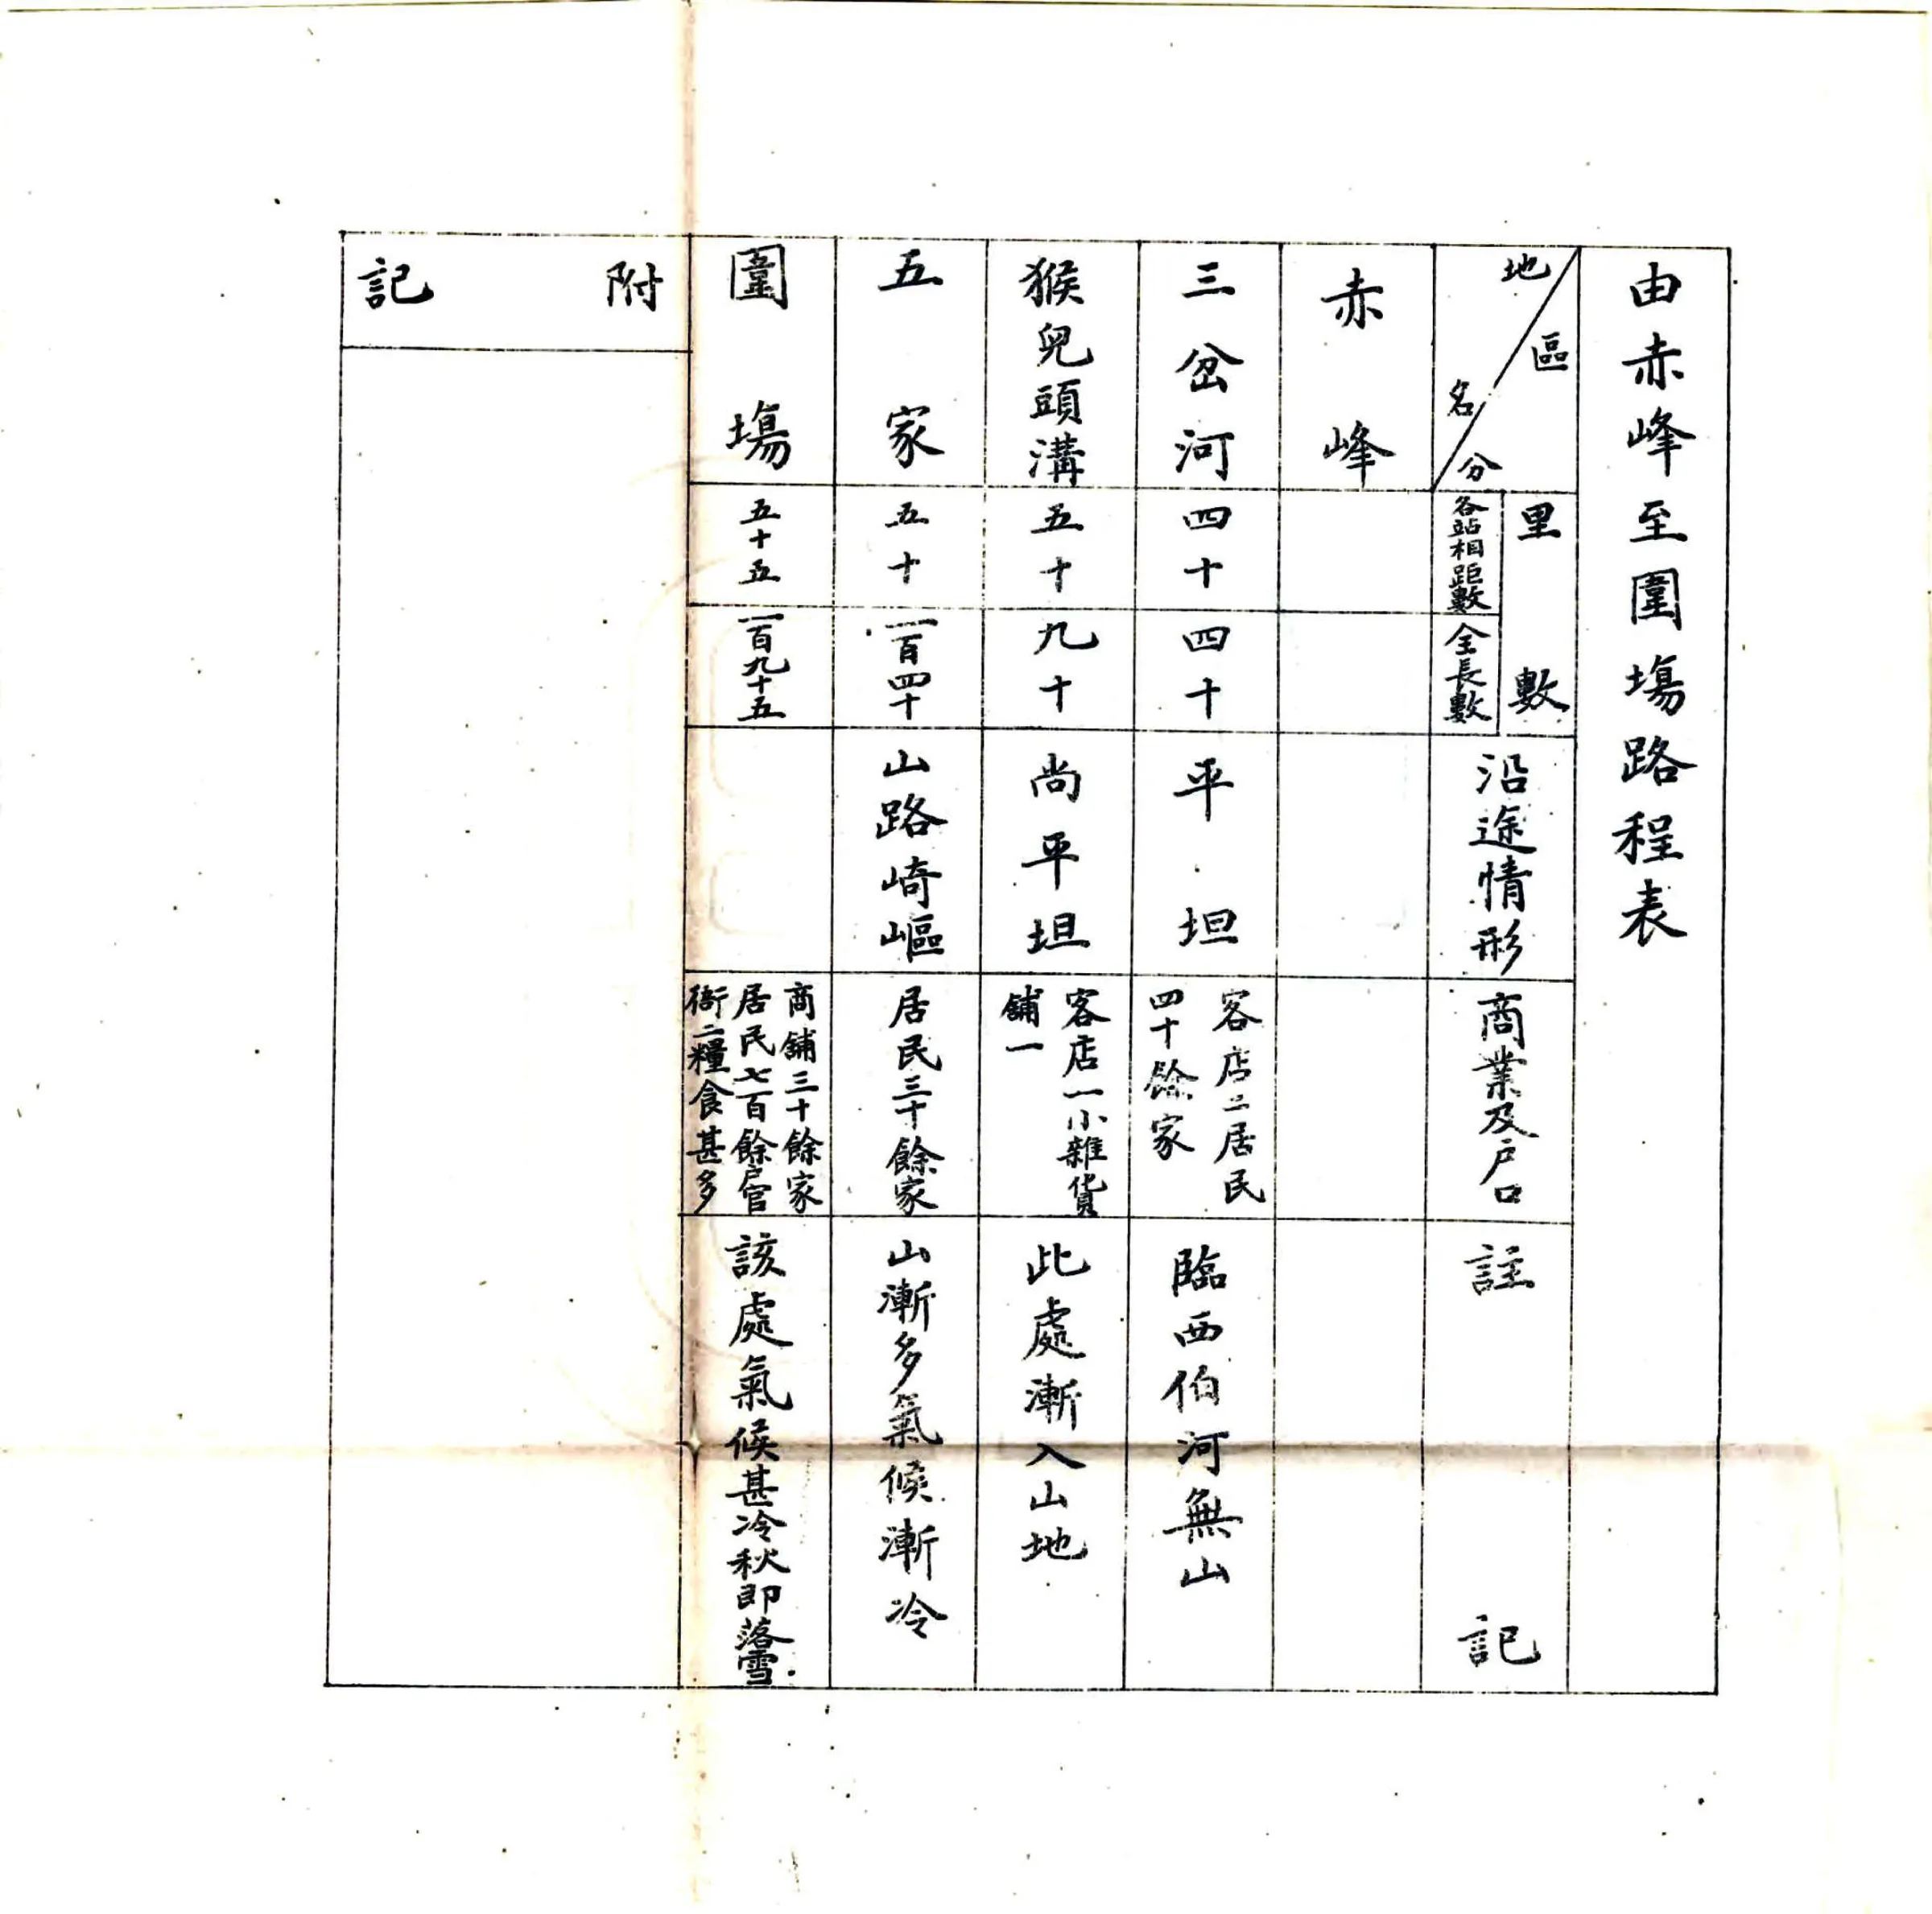 由赤峰至圍塲路程表
區分
地名
里數
各站相距數
全長數
沿途情形
商業及户口
註記
赤峰
三岔河
四十
四十
平坦
客店二居民
四十餘家
臨西伯河無山
猴兒頭溝
五十
九十
尚平坦
客店一小雜貨
舖一
此處漸入山地
五家
五十
一百四十
山路崎嶇
居民三十餘家
山漸多氣候漸冷
圍塲
五十五
一百九十五
商舖三十餘家
居民七百餘户官
衙二糧食甚多
該處氣候甚冷秋即落雪
附記